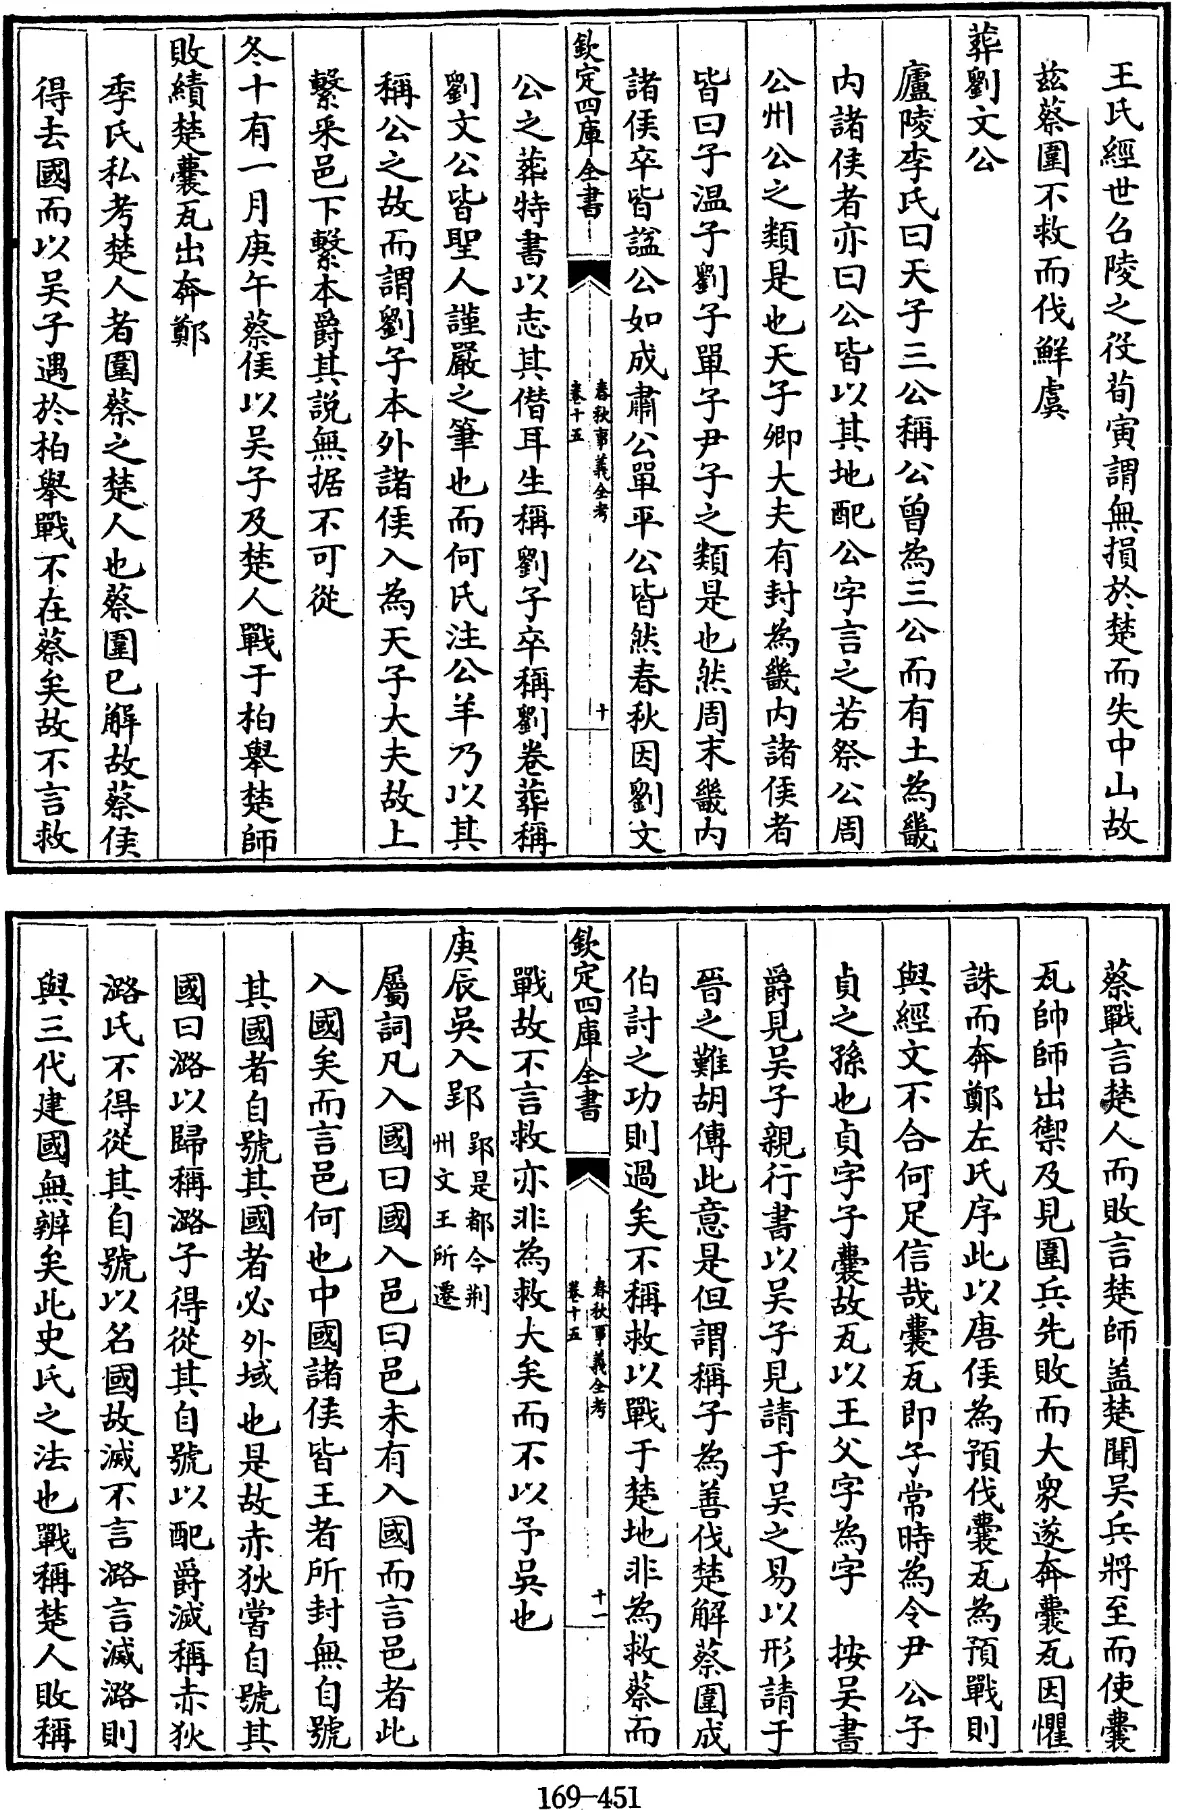 王氏經世召陵之役荀寅謂無損於楚而失中山故
玆蔡圍不救而伐鮮虞
葬劉文公
廬陵李氏曰天子三公稱公曾為三公而有土為畿
内諸侯者亦曰公皆以其地配公字言之若祭公周
公州公之類是也天子卿大夫有封為畿内諸侯者
皆曰子温子劉子單子尹子之類是也然周末畿内
諸侯卒皆諡公如成肅公單平公皆然春秋因劉文
欽定四庫全書
春秋事義全考
卷十五
十
公之葬特書以志其僭耳生稱劉子卒稱劉卷葬稱
劉文公皆聖人謹嚴之筆也而何氏注公羊乃以其
稱公之故而謂劉子本外諸侯入為天子大夫故上
繫采邑下繫本爵其説無据不可從
冬十有一月庚午蔡侯以吴子及楚人戰于柏舉楚師
敗績楚囊瓦出奔鄭
季氏私考楚人者圍蔡之楚人也蔡圍已解故蔡侯
得去國而以吴子遇於柏舉戰不在蔡矣故不言救
蔡戰言楚人而敗言楚師盖楚聞吴兵將至而使囊
瓦帥師出禦及見圍兵先敗而大衆遂奔囊瓦因懼
誅而奔鄭左氏序此以唐侯為預伐囊瓦為預戰則
與經文不合何足信哉囊瓦即子常時為令尹公子
貞之孫也貞字子囊故瓦以王父字為字　按吴書
爵見吴子親行書以吴子見請于吴之易以形請于
晉之難胡傳此意是但謂稱子為善伐楚解蔡圍成
伯討之功則過矣不稱救以戰于楚地非為救蔡而
欽定四庫全書
春秋事義全考
卷十五
十一
戰故不言救亦非為救大矣而不以予吴也
庚辰吴入郢郢是都今荆州文王所遷
屬詞凡入國曰國入邑曰邑未有入國而言邑者此
入國矣而言邑何也中國諸侯皆王者所封無自號
其國者自號其國者必外域也是故赤狄嘗自號其
國曰潞以歸稱潞子得從其自號以配爵滅稱赤狄
潞氏不得從其自號以名國故滅不言潞言滅潞則
與三代建國無辨矣此史氏之法也戰稱楚人敗稱
169-451